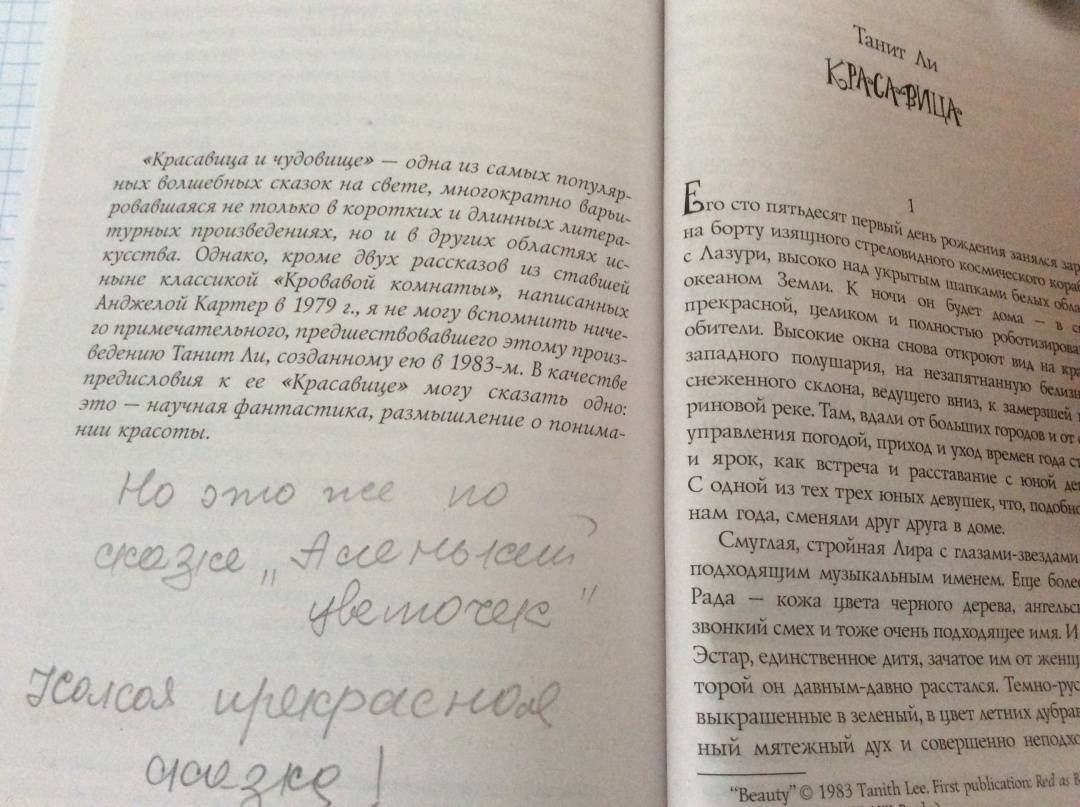 «Красавица и чудовище» — одна из самых популяр-
ных волшебных сказок на свете, многократно варьи-
ровавшаяся не только в коротких и длинных литера-
турных произведениях, но и в других областях ис-
кусства. Однако, кроме двух рассказов из ставшей
ныне классикой «Кровавой комнаты», написанных
Анджелой Картер в 1979 г., я не могу вспомнить ниче-
го примечательного, предшествовавшего этому произ-
ведению Танит Ли, созданному ею в 1983-м. В качестве
предисловия к ее «Красавице» могу сказать одно:
это — научная фантастика, размышление о понима-
нии красоты.
Но это же по
сказке „Аленький
цветочек"
Какая прекрасная
сказка!
Танит Ли
КРАСАВИЦА
1
Его сто пятьдесят первый день рождения занялся
на борту изящного стреловидного космического
с Лазури, высоко над укрытым шапками белых
океаном Земли. К ночи он будет дома — в
прекрасной, целиком и полностью
обители. Высокие окна снова откроют вид на
западного полушария, на незапятнанную
снеженного склона, ведущего вниз, к замерзшей
риновой реке. Там, вдали от больших городов и от
управления погодой, приход и уход времен года
и ярок, как встреча и расставание с юной
С одной из тех трех юных девушек, что,
нам года, сменяли друг друга в доме.
Смуглая, стройная Лира с глазами-звездами
подходящим музыкальным именем. Еще
Рада — кожа цвета черного дерева,
звонкий смех и тоже очень подходящее имя. И
Эстар, единственное дитя, зачатое им от
торой он давным-давно расстался.
выкрашенные в зеленый, в цвет летних
ный мятежный дух и совершенно
"Beauty" © 1983 Tanith Lee. First publication: Red as